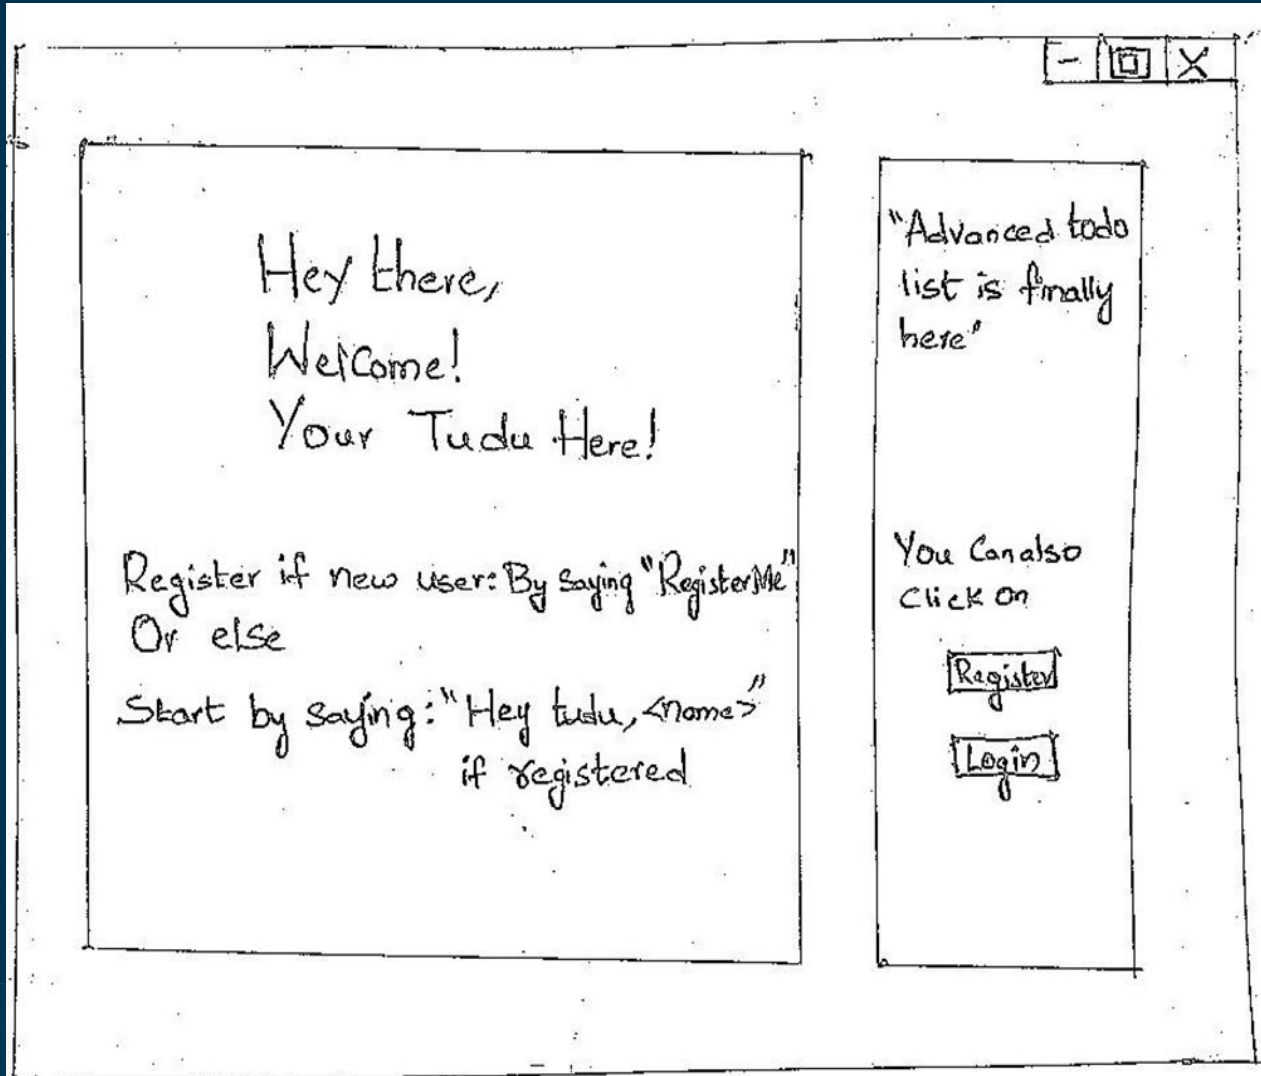 Hey there,
Welcome!
Your Tudu Here!
Register if new user: By saying "Register Me"
Or else
Start by saying: "Hey tudu, <name>"
if registered
"Advanced todo
list is finally
here"
You Can also
Click On
Register
Login